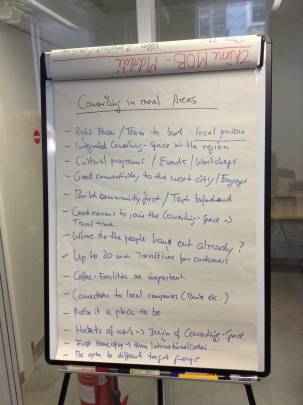 Coworking in rural Areas
- Right Person / Team to lead : local person
- Integrated Coworking-Space in the region
- Cultural programs / Events / Workshops
- Good connectivity to the next city /
- Build community first / Test beforehand
- Good reasons to join the Coworking-Space →
Travel time
- Where do the people hang out already?
- Up to 20 min. Traveltime for customers
- Coffee-Facilities are important
- Connection to local companies (
- Make it a place to be
- Habits of work → Design of Coworking-Space
- First → then
- Be open to different target groups